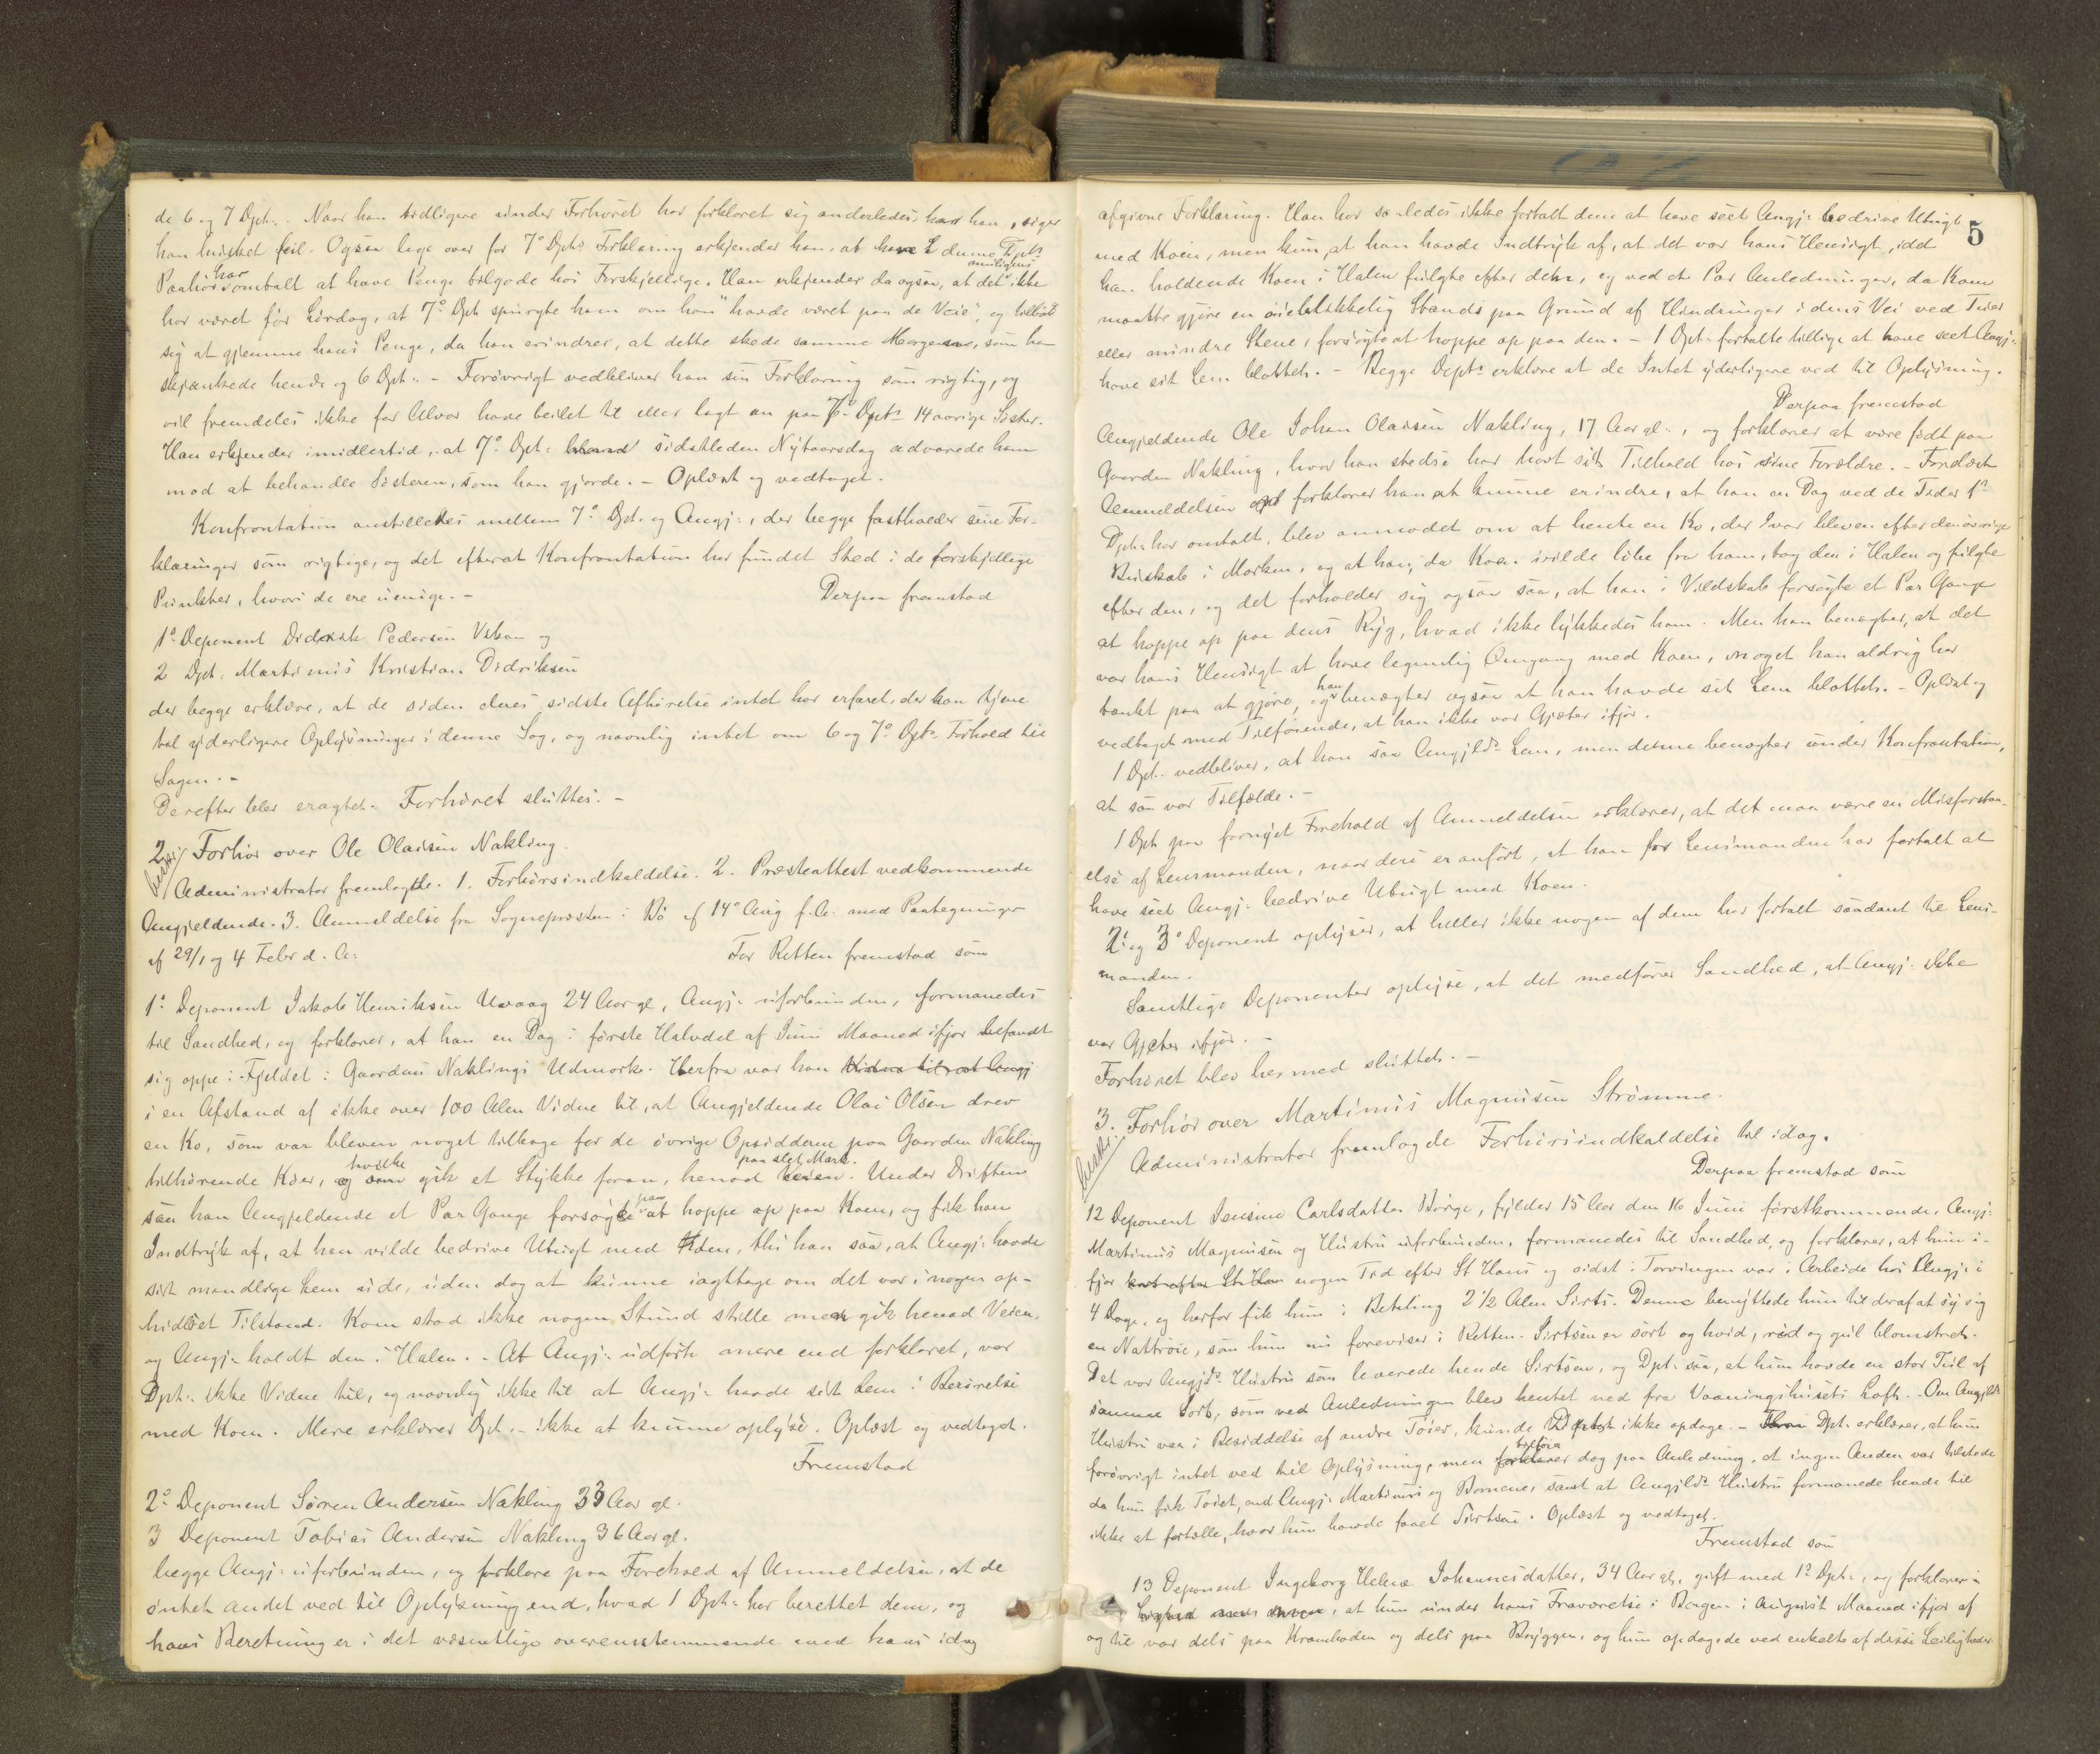 de 6 og 7 Dpt.. Naar han tidligere under Forhøret har forklaret sig anderledes har han, siger
han husket feil. Ogsaa lige over for 7de Dpts Forklaring erkjender han, at have i denne Dpts
Paahør har omtalt at have Penge tilgode hos Forskjellige. Han erkjender da ogsaa, at det muligens ikke
har været før Lørdag, at 7de Dpt. spurgte ham om han "havde været paa de Veie", og tilbød
sig at gjemme hans Penge, da han erindrer, at dette skede samme Morgen, som han
skjænkede hende og 6 Dpt. - Forøvrigt vedbliver han sin Forklaring som rigtig, og
vil fremdeles ikke for Alvor have beilet til eller lagt an paa 7de Dpts 14 aarige Søster.
Han erkjender imidlertid, at 7de Dpt. sidstleden Nytaarsdag advarede ham
mod at behandle Søsteren, som han gjorde. - Oplæst og vedtaget.
Konfrontation anstilledes mellem 7de Dpt. og Angj:, der begge fastholder sine For-
klaringer som rigtige, og det efterat Konfrontation har fundet Sted i de forskjellige
Punkter, hvori de ere uenige. -
Derpaa fremstod
1ste Deponent Didrik Pedersen Viken og
2 Dpt. Martinus Kristian Didriksen
der begge erklære, at de siden deres sidste Afhørelse intet har erfaret, der kan tjene
til yderligere Oplysninger i denne Sag, og navnlig intet om 6 og 7de Dpts Forhold til
Sagen. -
Derefter blev eragtet. Forhøret sluttes. -
2. Forhør over Ole Olaisen Nakling.
Administrator fremlagde. 1. Forhørsindkaldelse. 2. Præsteattest vedkommende
Angjeldende. 3. Anmeldelse fra Sognepresten i Bø af 14de Aug f. A. med Paategninger
af 29/1 og 4 Febr d. A:
For Retten fremstod som
1ste Deponent Jakob Henriksen Uvaag 24 Aar gl, Angj: uforbunden, formanedes
til Sandhed, og forklarer, at han en Dag i første Halvdel af Juni Maaned ifjor befandt
sig oppe i Fjeldet i Gaarden Naklings Udmark. Herfra var han Vidne til, at Angj
i en Afstand af ikke over 100 Alen Vidne til, at Angjeldende Olai Olsen drev
en Ko, som var bleven noget tilbage for de øvrige Opsidderne paa Gaarden Nakling
tilhørende Kiør, og som hvilke gik et Stykke foran, henad Veien paa slet Mark. Under Driften
saa han Angjeldende et Par Gange forsøgte paa at hoppe op paa Koen, og fik han
Indtryk af, at han vilde bedrive Utugt med den, thi han saa, at Angj: havde
sit mandlige Lem ude, uden dog at kunne iagttage om det var i nogen op-
hidset Tilstand. Koen stod ikke nogen Stund stille men gik henad Veien,
og Angj: holdt den i Halen. - At Angj: udførte mere end forklaret, var
Dpt. ikke Vidne til, og navnlig ikke til at Angj: havde sit Lem i Berørelse
med Koen. Mere erklærer Dpt. - ikke at kunne oplyse. Oplæst og vedtaget.
Fremstod
2de Deponent Søren Andersen Nakling 33 Aar gl.
3 Deponent Tobias Andersen Nakling 36 Aar gl.
begge Angj: uforbunden, og forklare paa Forehold af Anmeldelsen, at de
intet andet ved til Oplysning end, hvad 1 Dpt. har berettet dem, og
hans Beretning er i det væsentlige overensstemmende med hans idag
5
afgivne Forklaring. Han har saaledes ikke fortalt dem at have seet Angj: bedrive Utugt
med Koen, men kun, at han havde Indtryk af, at det var hans Hensigt, idet
han holdende Koen i Halen fulgte efter den, og ved et Par Anledninger, da Koen
maatte gjøre en øieblikkelig Stands paa Grund af Hindringer i dens Vei ved Træer
eller mindre Stene, forsøgte at hoppe op paa den. - 1 Dpt. fortalte tillige at have seet Angj:
have sit Lem blottet. - Begge Dpts erklære at de Intet yderligere ved til Oplysning.
Derpaa fremstod
Angjeldende Ole Johan Olaisen Nakling, 17 Aar gl., og forklarer at være født paa
Gaarden Nakling, hvor han stedse har havt sit Tilhold hos sine Forældre. - Forelæst
Anmeldelsen forklarer han at kunne erindre, at han en Dag ved de Tider 1ste
Dpt. har omtalt, blev anmodet om at hente en Ko, der var bleven efter den øvrige
Buskab i Marken, og at han, da Koen vilde løbe fra ham, tog den i Halen og fulgte
efter den, og det forholder sig ogsaa saa, at han i Vildskab forsøgte et Par Gange
at hoppe op paa dens Ryg, hvad ikke lykkedes ham. Men han benægter, at det
var hans Hensigt at have legemlig Omgang med Koen, noget han aldrig har
tænkt paa at gjøre, og han benægter ogsaa at han havde sit Lem blottet. - Oplæst og
vedtaget med Tilføiende, at han ikke var Gjæter ifjor.
1 Dpt. vedbliver, at han saa Angjlds Lem, men denne benægter under Konfrontation,
at saa var Tilfælde. -
1 Dpt paa fornyet Forehold af Anmeldelsen erklærer, at det maa være en Misforstaa-
else af Lensmanden, naar deri er anført, at han for Lensmanden har fortalt at
have seet Angj: bedrive Utugt med Koen.
2de og 3die Deponent oplyser, at heller ikke nogen af dem har fortalt saadant til Lens-
manden.
Samtlige Deponenter oplyse, at det medfører Sandhed, at Angj: ikke
var Gjæter ifjor. -
Forhøret blev hermed sluttet. -
3. Forhør over Martinus Magnusen Strømme.
Administrator fremlagde Forhørsindkaldelse til idag.
Derpaa fremstod som
12 Deponent Jensine Carlsdatter Börge, fylder 15 Aar den 16 Juni førstkommende, Angj:
Martinus Magnusen og Hustru uforbunden, formanedes til Sandhed, og forklarer, at hun i-
fjor kort efter St. Han nogen Tid efter St Hans og sidst i Torvingen var i Arbeide hos Angj: i
4 Dage, og herfor fik hun i Betaling 2 1/2 Alen Sirts. Denne benyttede hun til deraf at sy sig
en Nattrøie, som hun nu foreviser i Retten. Sirtsen er sort og hvid, rød og gul blomstret.
Det var Angjlds Hustru som leverede hende Sirtsen, og Dpt. saa, at hun havde en stor Del af
samme Sort, som ved Anledningen blev hentet ned fra Vaaningshusets Loft. - Om Angjlds
Hustru var i Besiddelse af andre Tøier, kunde Dpt. ikke opdage. - Dpt. erklærer, at hun
forøvrigt intet ved til Oplysning, men forklarer tilføier dog paa Anledning, at ingen Anden var tilstede
da hun fik Tøiet, end Angj: Martinus og Børnene, samt at Angjlds Hustru formanede hende til
ikke at fortælle, hvor hun havde faaet Sirtsen. Oplæst og vedtaget.
Fremstod som
13 Deponent Ingeborg Helene Johannesdatter, 34 Aar gl, gift med 1ste Dpt., og forklarer
at hun under hans Fraværelse i Bergen i August Maaned ifjor af
og til var dels paa Kramboden og dels paa Bryggen, og hun opdagede ved enkelte af disse Leiligheder